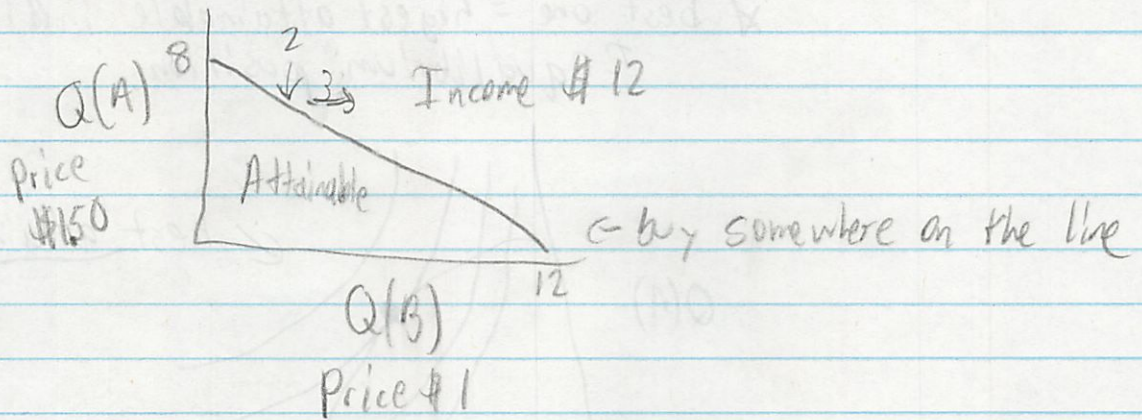 2
8
3 Income $ 12
Q(A)
Price
$1.50
Attainable
← buy somewhere on the line
12
Q(B)
Price $1